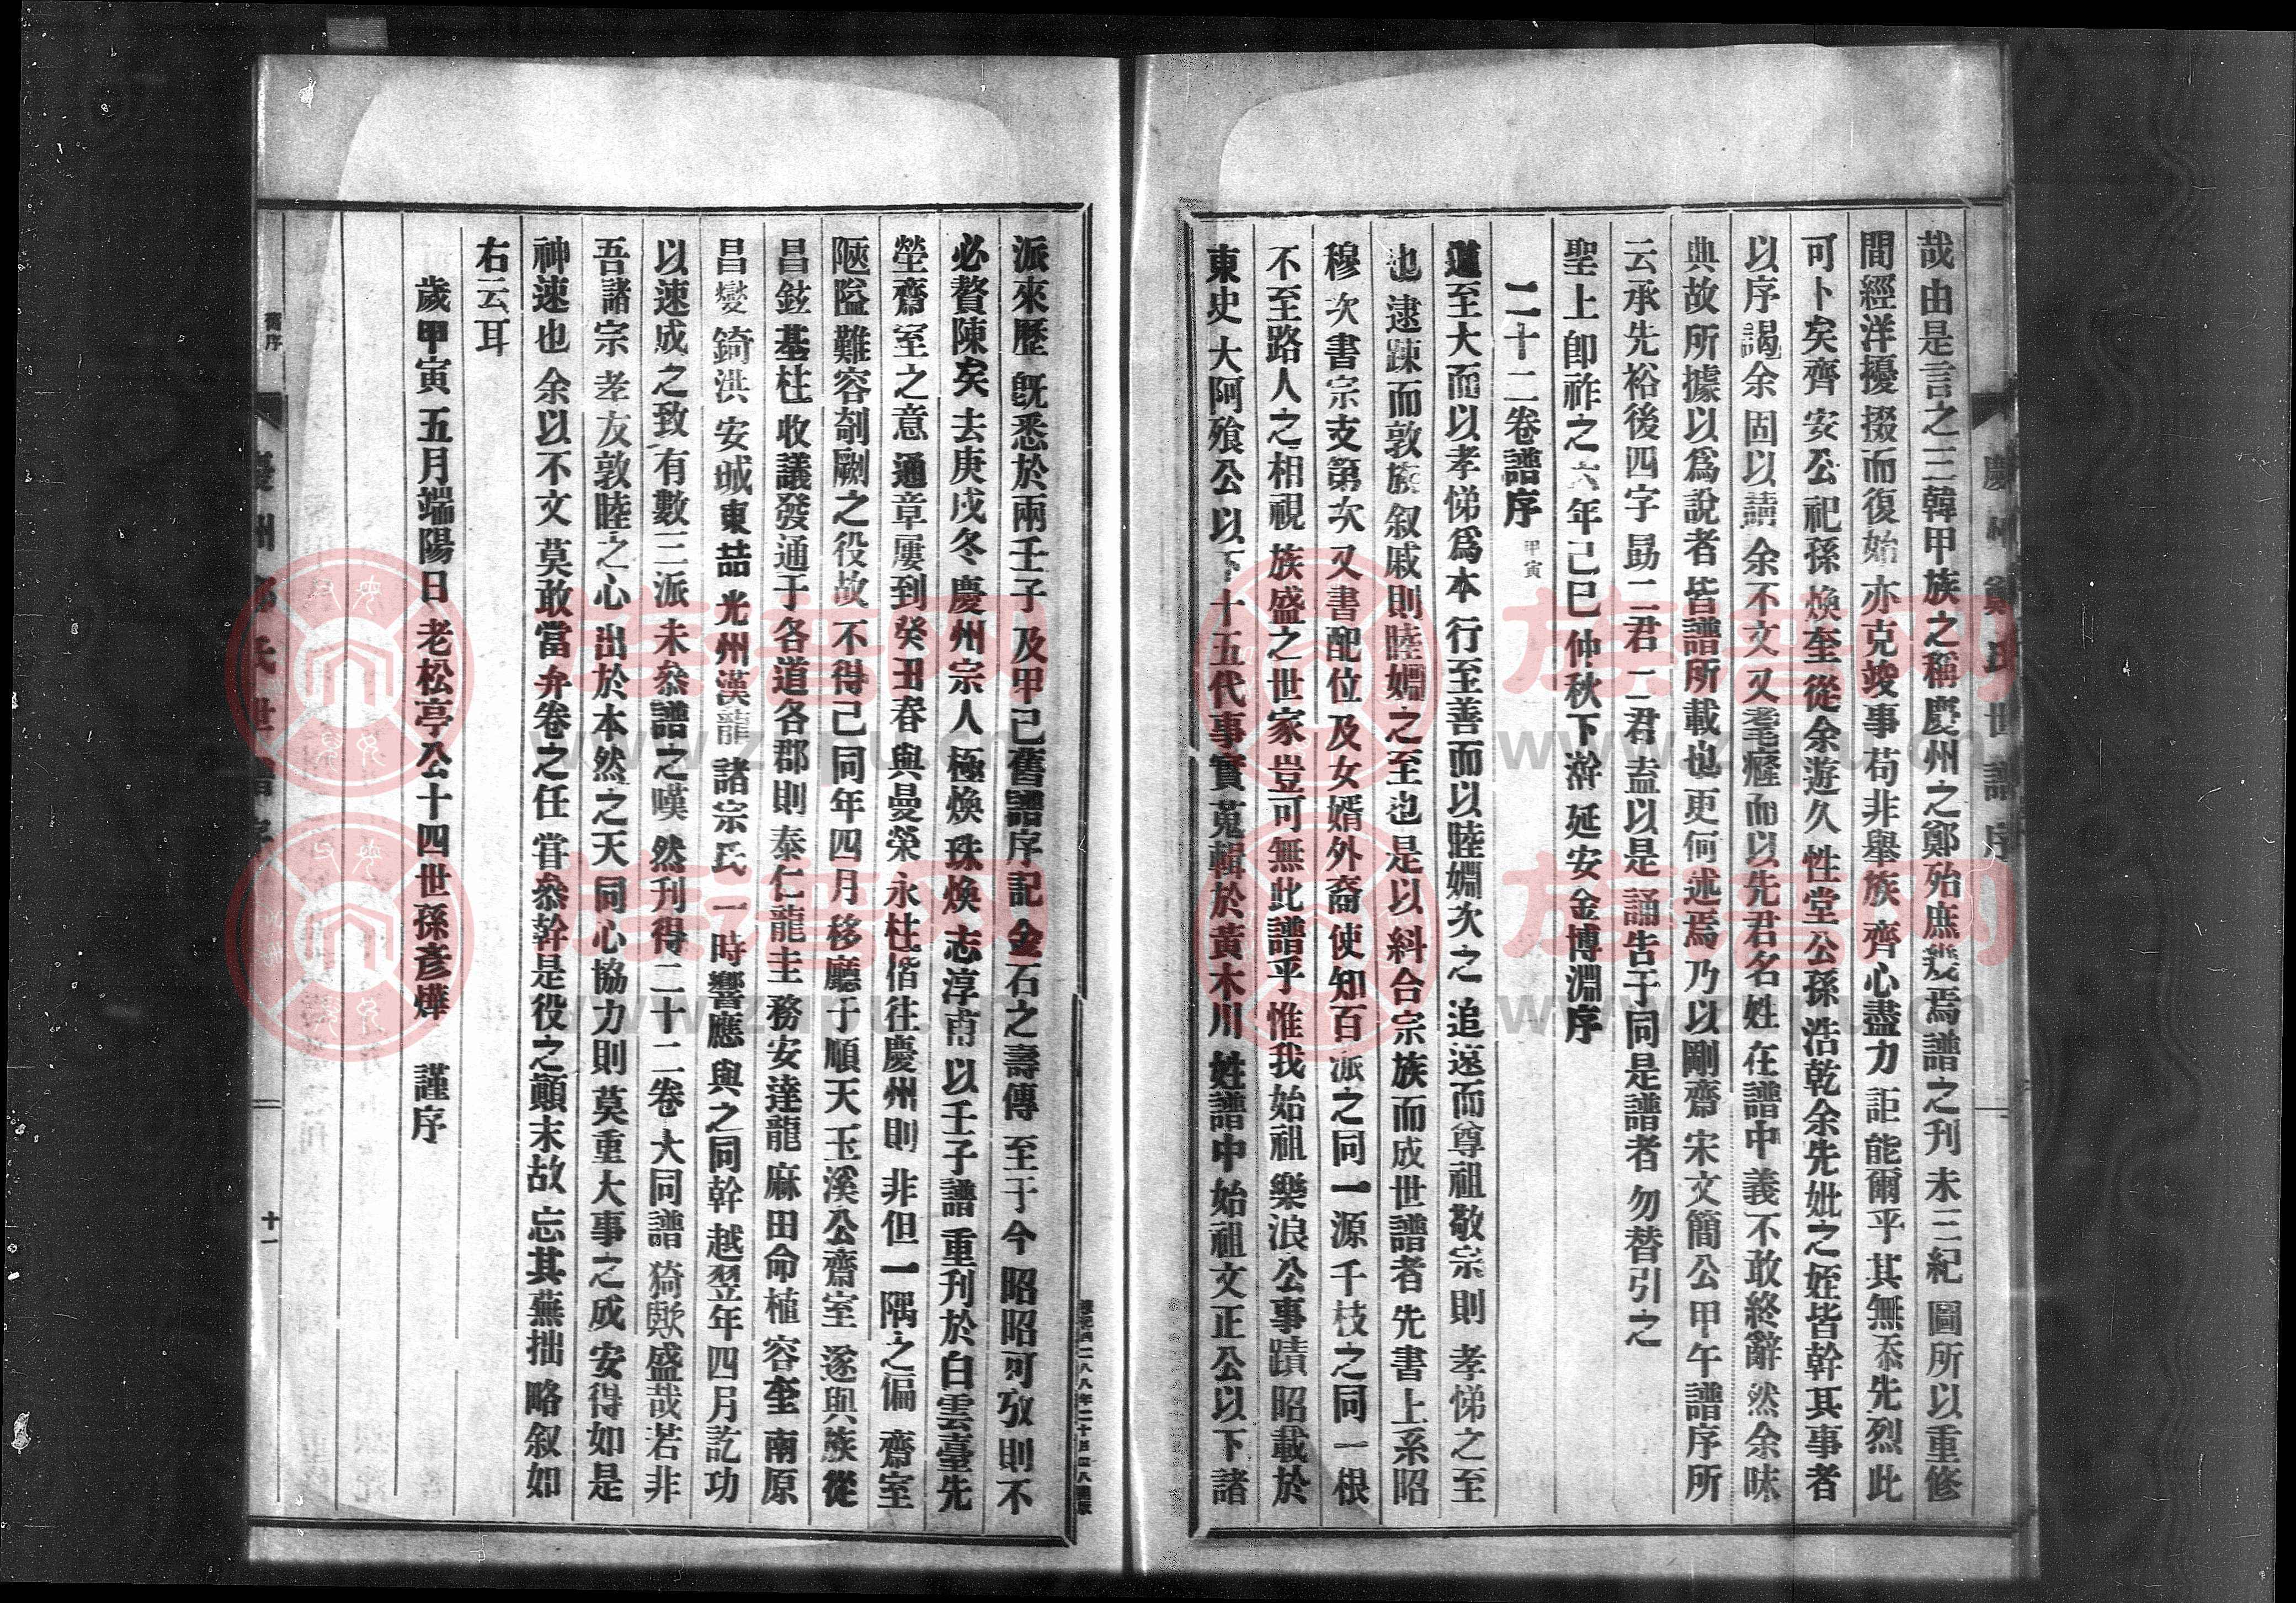 哉由是言之三韓甲族之稱慶州之鄭殆庶幾焉譜之刊未三紀圖所以重修
間經洋擾掇而復始亦克竣事苟非舉族齊心盡力詎能爾乎其無忝先烈此
可卜矣齊安公祀孫煥奎從余遊久性堂公孫浩乾余先妣之姪皆幹其事者
以序謁余固以讀余不文又耄癃而以先君名姓在譜中義不敢終辭然余昧
典故所據以爲說者皆譜所載也更何述焉乃以剛齋宋文簡公甲午譜序所
云承先裕後四字勗二君二君盍以是誦告于同是譜者勿替引之
聖上卽祚之六年己巳仲秋下澣延安金博淵序
二十二卷譜序 甲寅
道至大而以孝悌爲本行至善而以睦婣次之追遠而尊祖敬宗則孝悌之至
也逮踈而敦族叙戚則睦婣之至也是以糾合宗族而成世譜者先書上系昭
穆次書宗支第次又書配位及女婿外裔使知百派之同一源千枝之同一根
不至路人之相視族盛之世家豈可無此譜乎惟我始祖樂浪公事蹟昭載於
東史大阿飱公以下十五代事實蒐輯於黃木川姓譜中始祖文正公以下諸
慶州鄭氏世譜序
派來歷旣悉於兩壬子及甲己舊譜序記金石之壽傳至于今昭昭可攷則不
必贅陳矣去庚戌冬慶州宗人極煥珠煥志淳甫以壬子譜重刊於白雲臺先
塋齋室之意通章屢到癸丑春與曼榮永柱偕往慶州則非但一隅之偏齋室
陋隘難容剞劂之役故不得已同年四月移廳于順天玉溪公齋室遂與族從
昌鉉基柱收議發通于各道各郡則泰仁龍圭務安達龍麻田命植容奎南原
昌燮錡洪安城東喆光州漢龍諸宗氏一時響應與之同幹越翌年四月訖功
以速成之致有數三派未叅譜之嘆然刊得二十二卷大同譜猗歟盛哉若非
吾諸宗孝友敦睦之心出於本然之天同心協力則莫重大事之成安得如是
神速也余以不文莫敢當弁卷之任嘗叅幹是役之顚末故忘其蕪拙略叙如
右云耳
歲甲寅五月端陽日老松亭公十四世孫彥燁 謹序
舊序
慶州鄭氏世譜序
十一
族譜网
www.zupu.cn
族譜网
www.zupu.cn
族譜网
www.zupu.cn
族譜网
www.zupu.cn